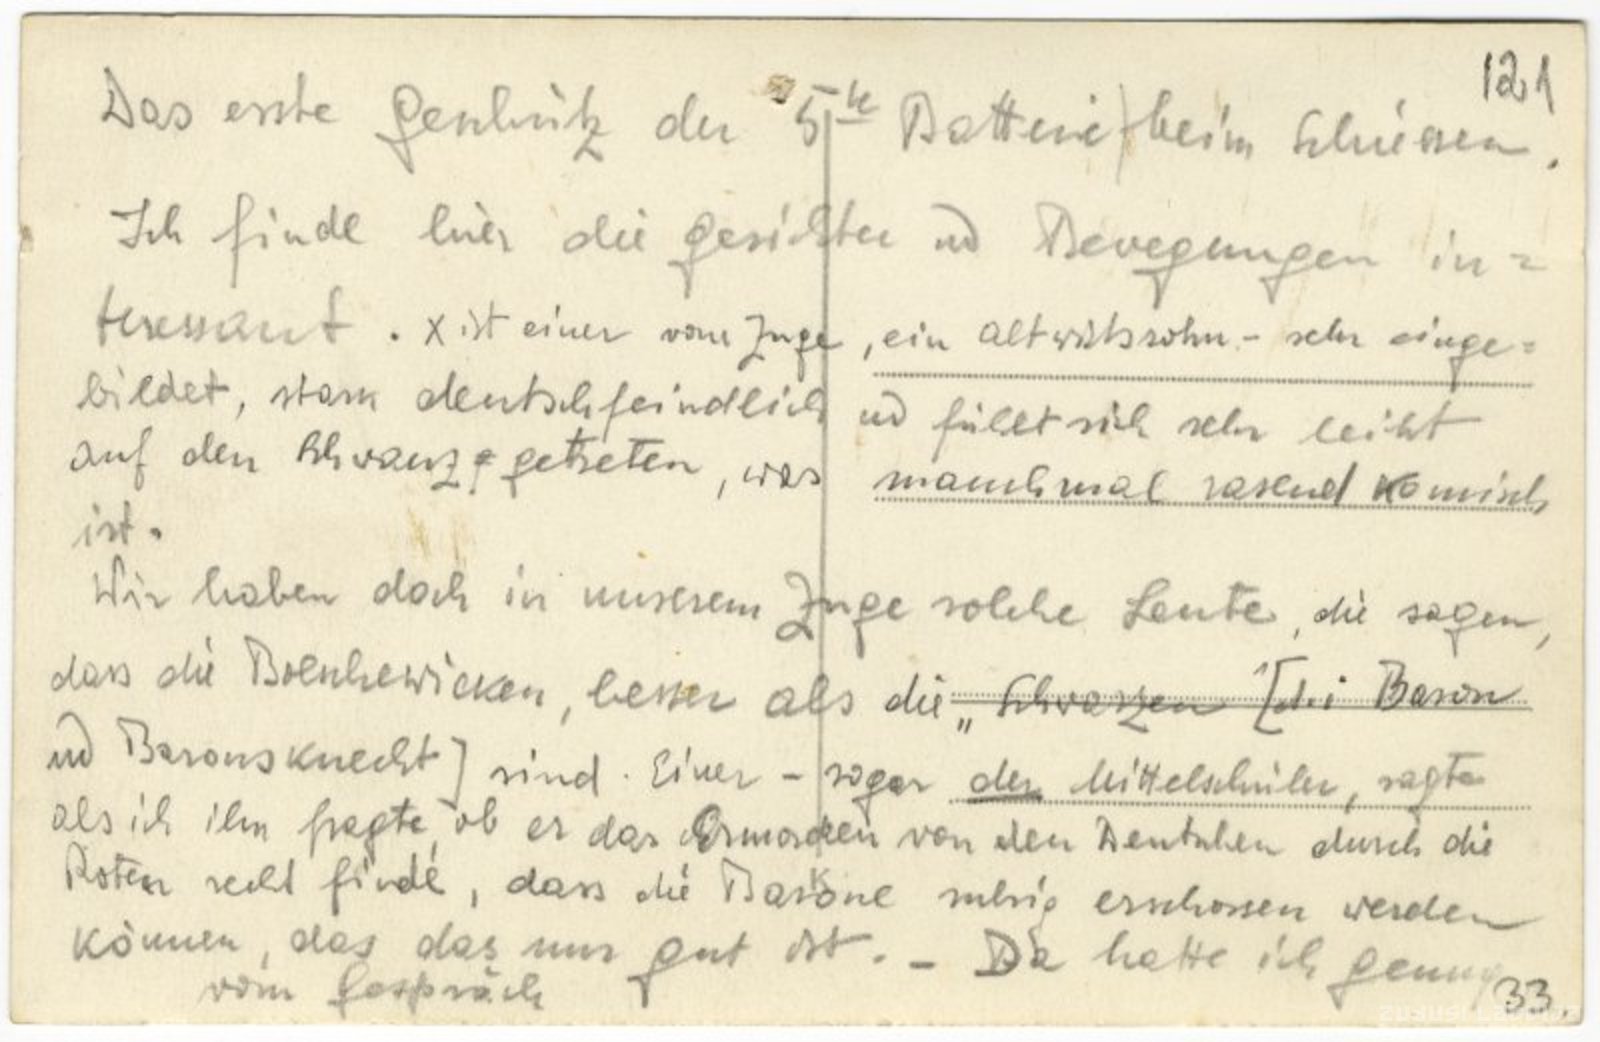 121
Das erste Geschütz der 5te Batterie) beim Schiessen.
Ich finde hier die Gesichter ud Bewegungen in=
teressant. X ist einer vom Zuge, ein Altwirtssohn - sehr einge=
bildet, stark deutschfeindlich ud fühlt sich sehr leicht
auf den Schwanz getreten, was manchmal rasend komisch
ist.
Wir haben doch in unserem Zuge solche Leute, die sagen,
dass die Bolschewicken, besser als die „Schwarzen [die Baron
ud Baronsknecht] sind. Einer - sogar der Mittelschüler, sagte
als ich ihn fragte, ob er das Ermorden von den Deutschen durch die
Roten recht finde, dass die Barone ruhig erschossen werden
können, das das nur gut ist. - Da hatte ich genug
vom Gespräch
33